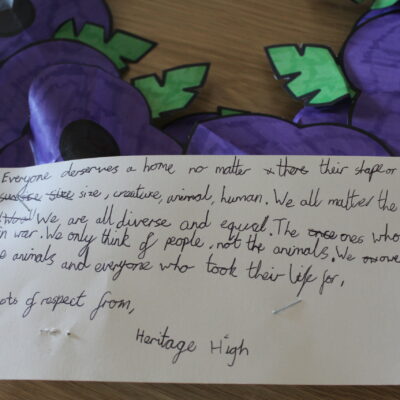 Everyone derserves a home no matter there their shape or
size size, creature, animal, human. We all matter the
We are all diverse and equel. The once ones who
in war. We only think of people, not the animals. We owe
e animals and everyone who took their life for,
ots of respect from,
Heritage High